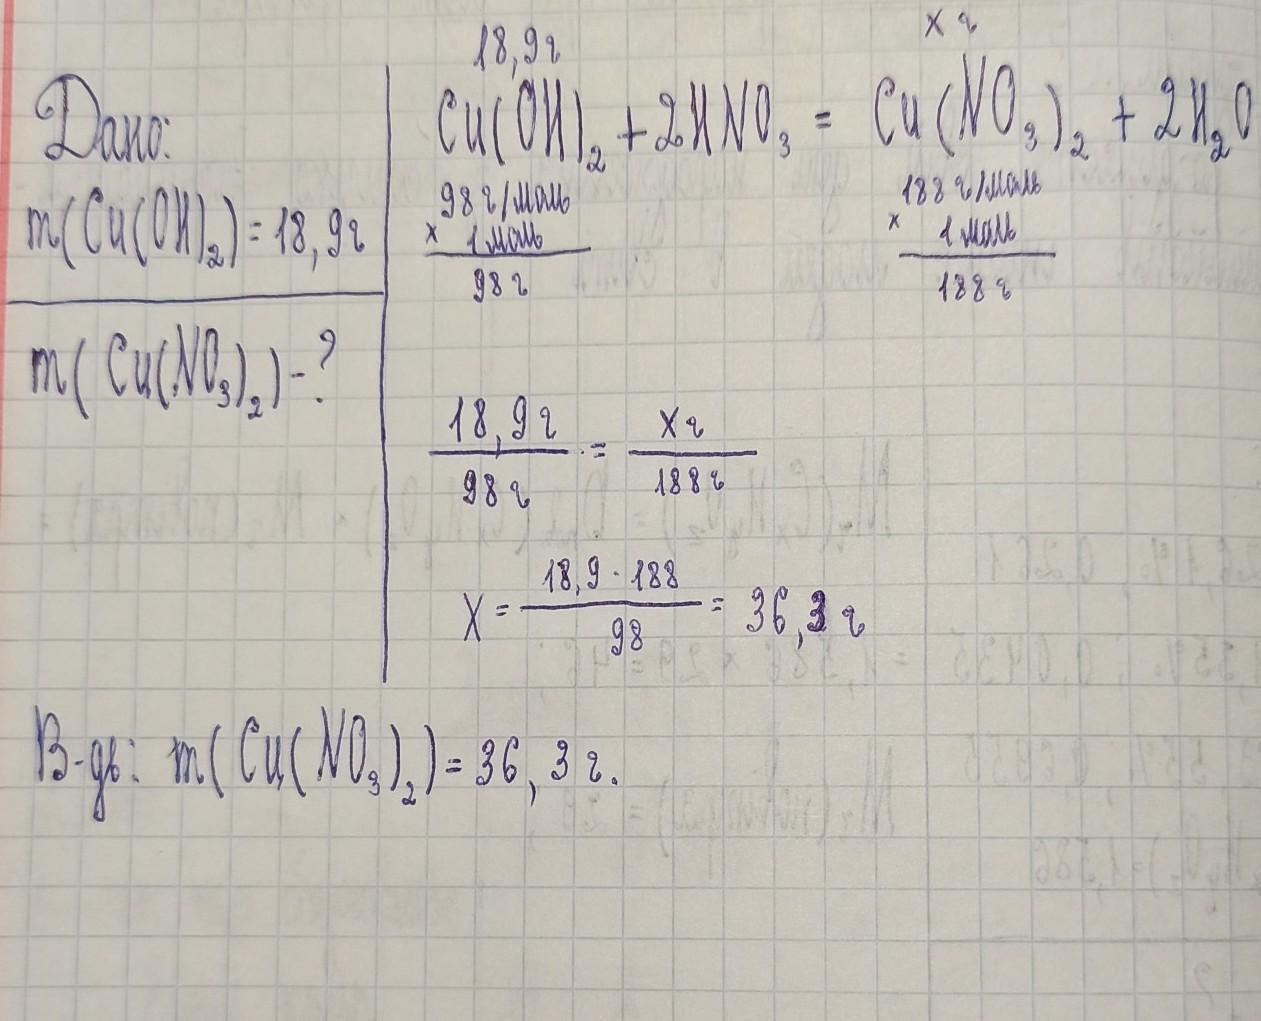 Дано:
m(Cu(OH)₂) = 18,9г
m(Cu(NO₃)₂) - ?
18,9г
x г
Cu(OH)₂ + 2HNO₃ = Cu(NO₃)₂ + 2H₂O
98 г/моль
x 1 моль
98 г
188 г/моль
x 1 моль
188 г
18,9 г / 98 г = x г / 188 г
X = 18,9 · 188 / 98 = 36,3 г
В-дь: m(Cu(NO₃)₂) = 36,3 г.